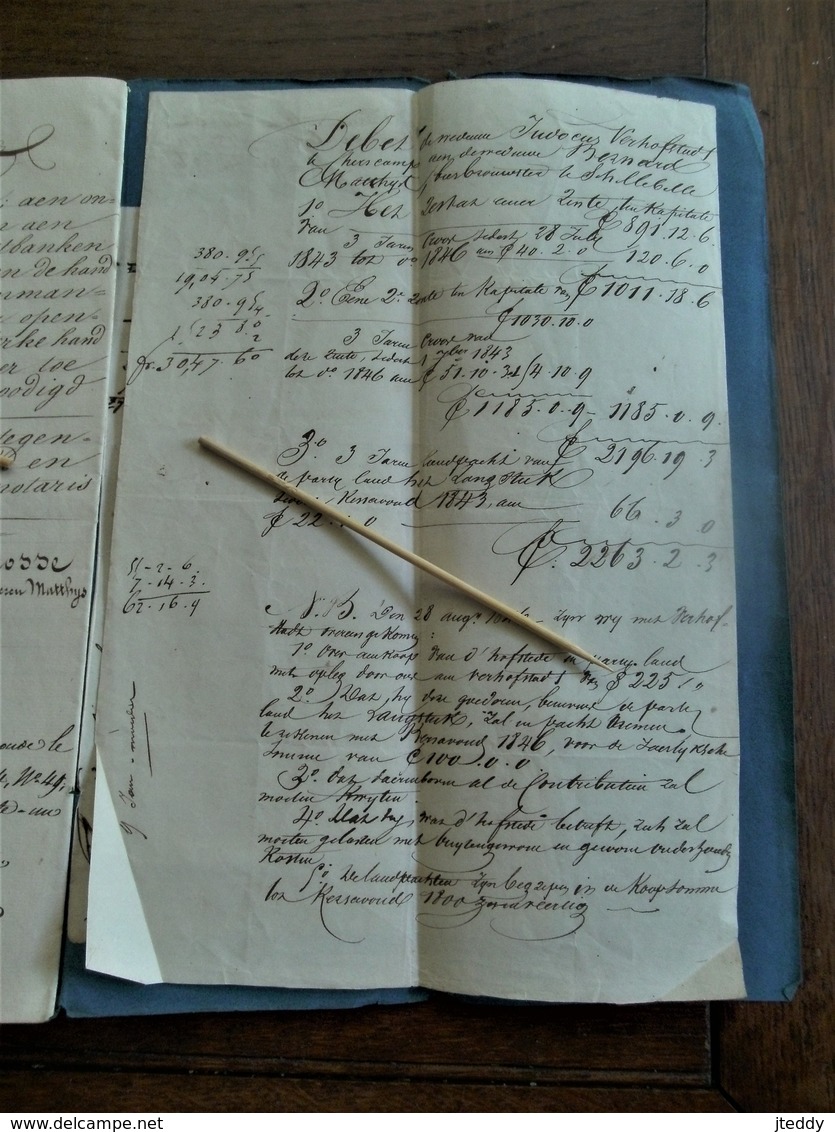 ; aen on-
n aen
tbanken
n de hand
rman-
open-
rke hand
er toe
oodigd
tegen-
en
notaris
osse
eren Matthys
oude le
Debet de weduwe Judocus Verhofstadt
te cherscamp aen de weduwe Bernard
Matthys bierbrouwster te Schellebelle
1º Het Restat eener Rente, ten Kapitale
van £ 891.12.6.
3 Jaren Croos sedert 28 July
1843 tot do 1846 a £ 40.2.0 120.6.0
£ 1011.18.6
2º Eene 2e Rente ten Kapitale van
£ 1030.10.0
3 Jaren Croos van
deze Rente, sedert 1843
tot do 1846 a £ 51.10.
£ 1185.0.9 - 1185.0.9.
£ 2196.19.3
3.º 3 Jaren landpacht van
de party land het Langstuk
Kersavond 1843, aen
£ 22.1.0 66.3.0
£. 2263.2.3
380.95
19,04.75
380.95
fr. 3047.60
55-2-6.
7-14-3.
62-16.9
N.B. Den 28 augt - zyn wy met Verhof-
stadt overeengekomen:
1º Over aenkoop van d'hofstede en party land
met opleg door ons aen Verhofstadt van £ 225
2º Dat, hy deze goederen, benevens de party
land het Langstuk, zal in pacht nemen
te rekenen met Kersavond 1846, voor de Jaerlyksche
somme van £ 100.0.0
3º Dat daerenboven al de Contributien zal
moeten Kwyten
4º Dat hy, wat d'hofstede betreft, zich zal
moeten gelasten met buytengewoone en gewoone onderhoud
Kosten
5º De landpachten zyn begrepen in de Koopsomme
tot Kersavond 1800 zesenveertig
jteddy
www.delcampe.net